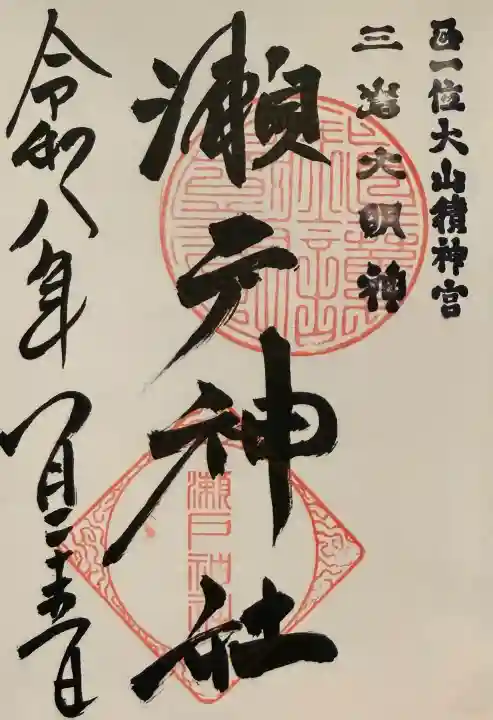 正一位大山積神宮
三嶌大明神
瀬戸神社
瀬戸神社
令和八年一月二十五日